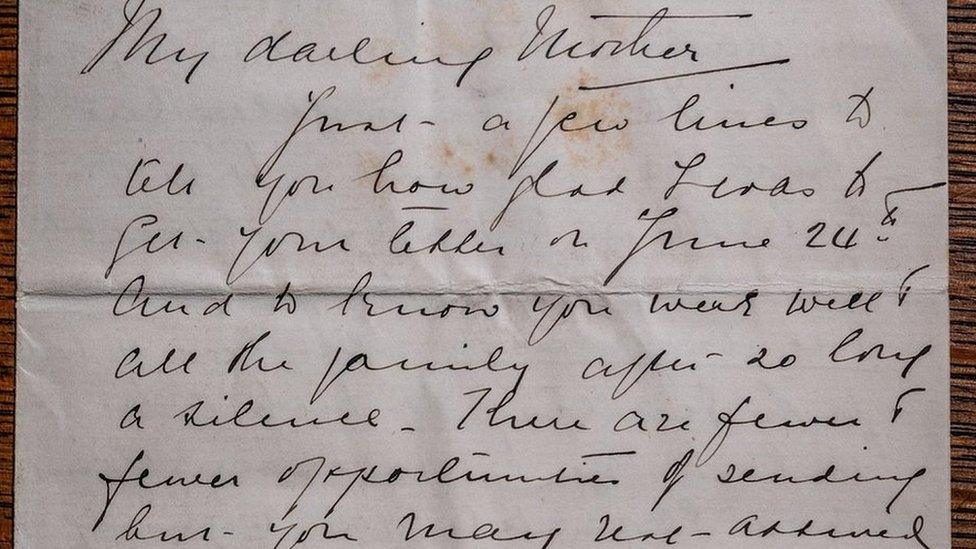 My darling Mother
Just a few lines to
tell you how glad I was to
get your letter on June 24th
and to know you were well &
all the family after so long
a silence - There are fewer &
fewer opportunities of sending
but you may rest assured